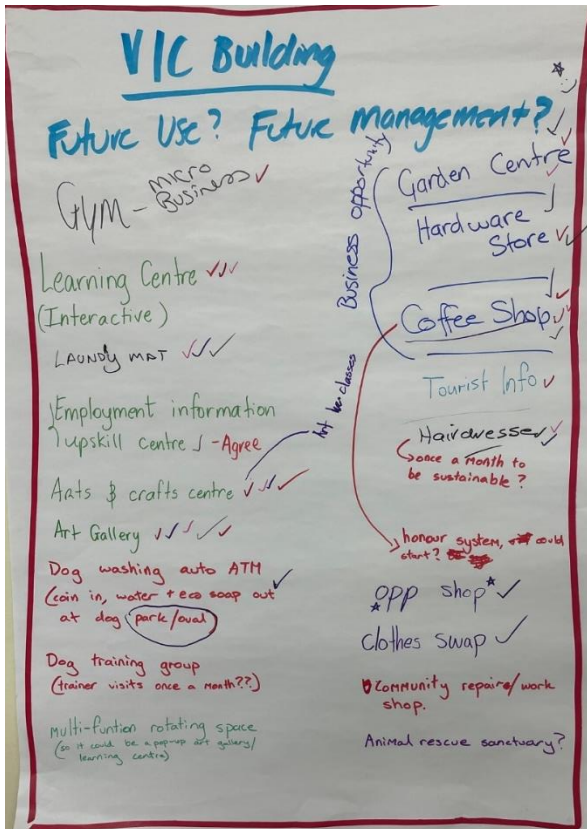 VIC Building
Future Use? Future management?
GYM - MICRO
Business
Learning Centre
(Interactive)
LAUNDY MAT
Employment information
upskill centre - Agree
Arts & crafts centre
Art Gallery
Dog washing auto ATM
(coin in, water + eco soap out
at dog park/oval
Dog training group
(trainer visits once a month??)
Multi-funtion rotating space
(so it could be a pop-up art gallery/
learning centre)
Business opportunity
Garden Centre
Hardware
Store
Coffee Shop
Art classes
Tourist Info
Hairdresser
once a month to
be sustainable?
honour system, could
start?
opp shop
clothes swap
Community repairs/work
shop.
Animal rescue sanctuary?